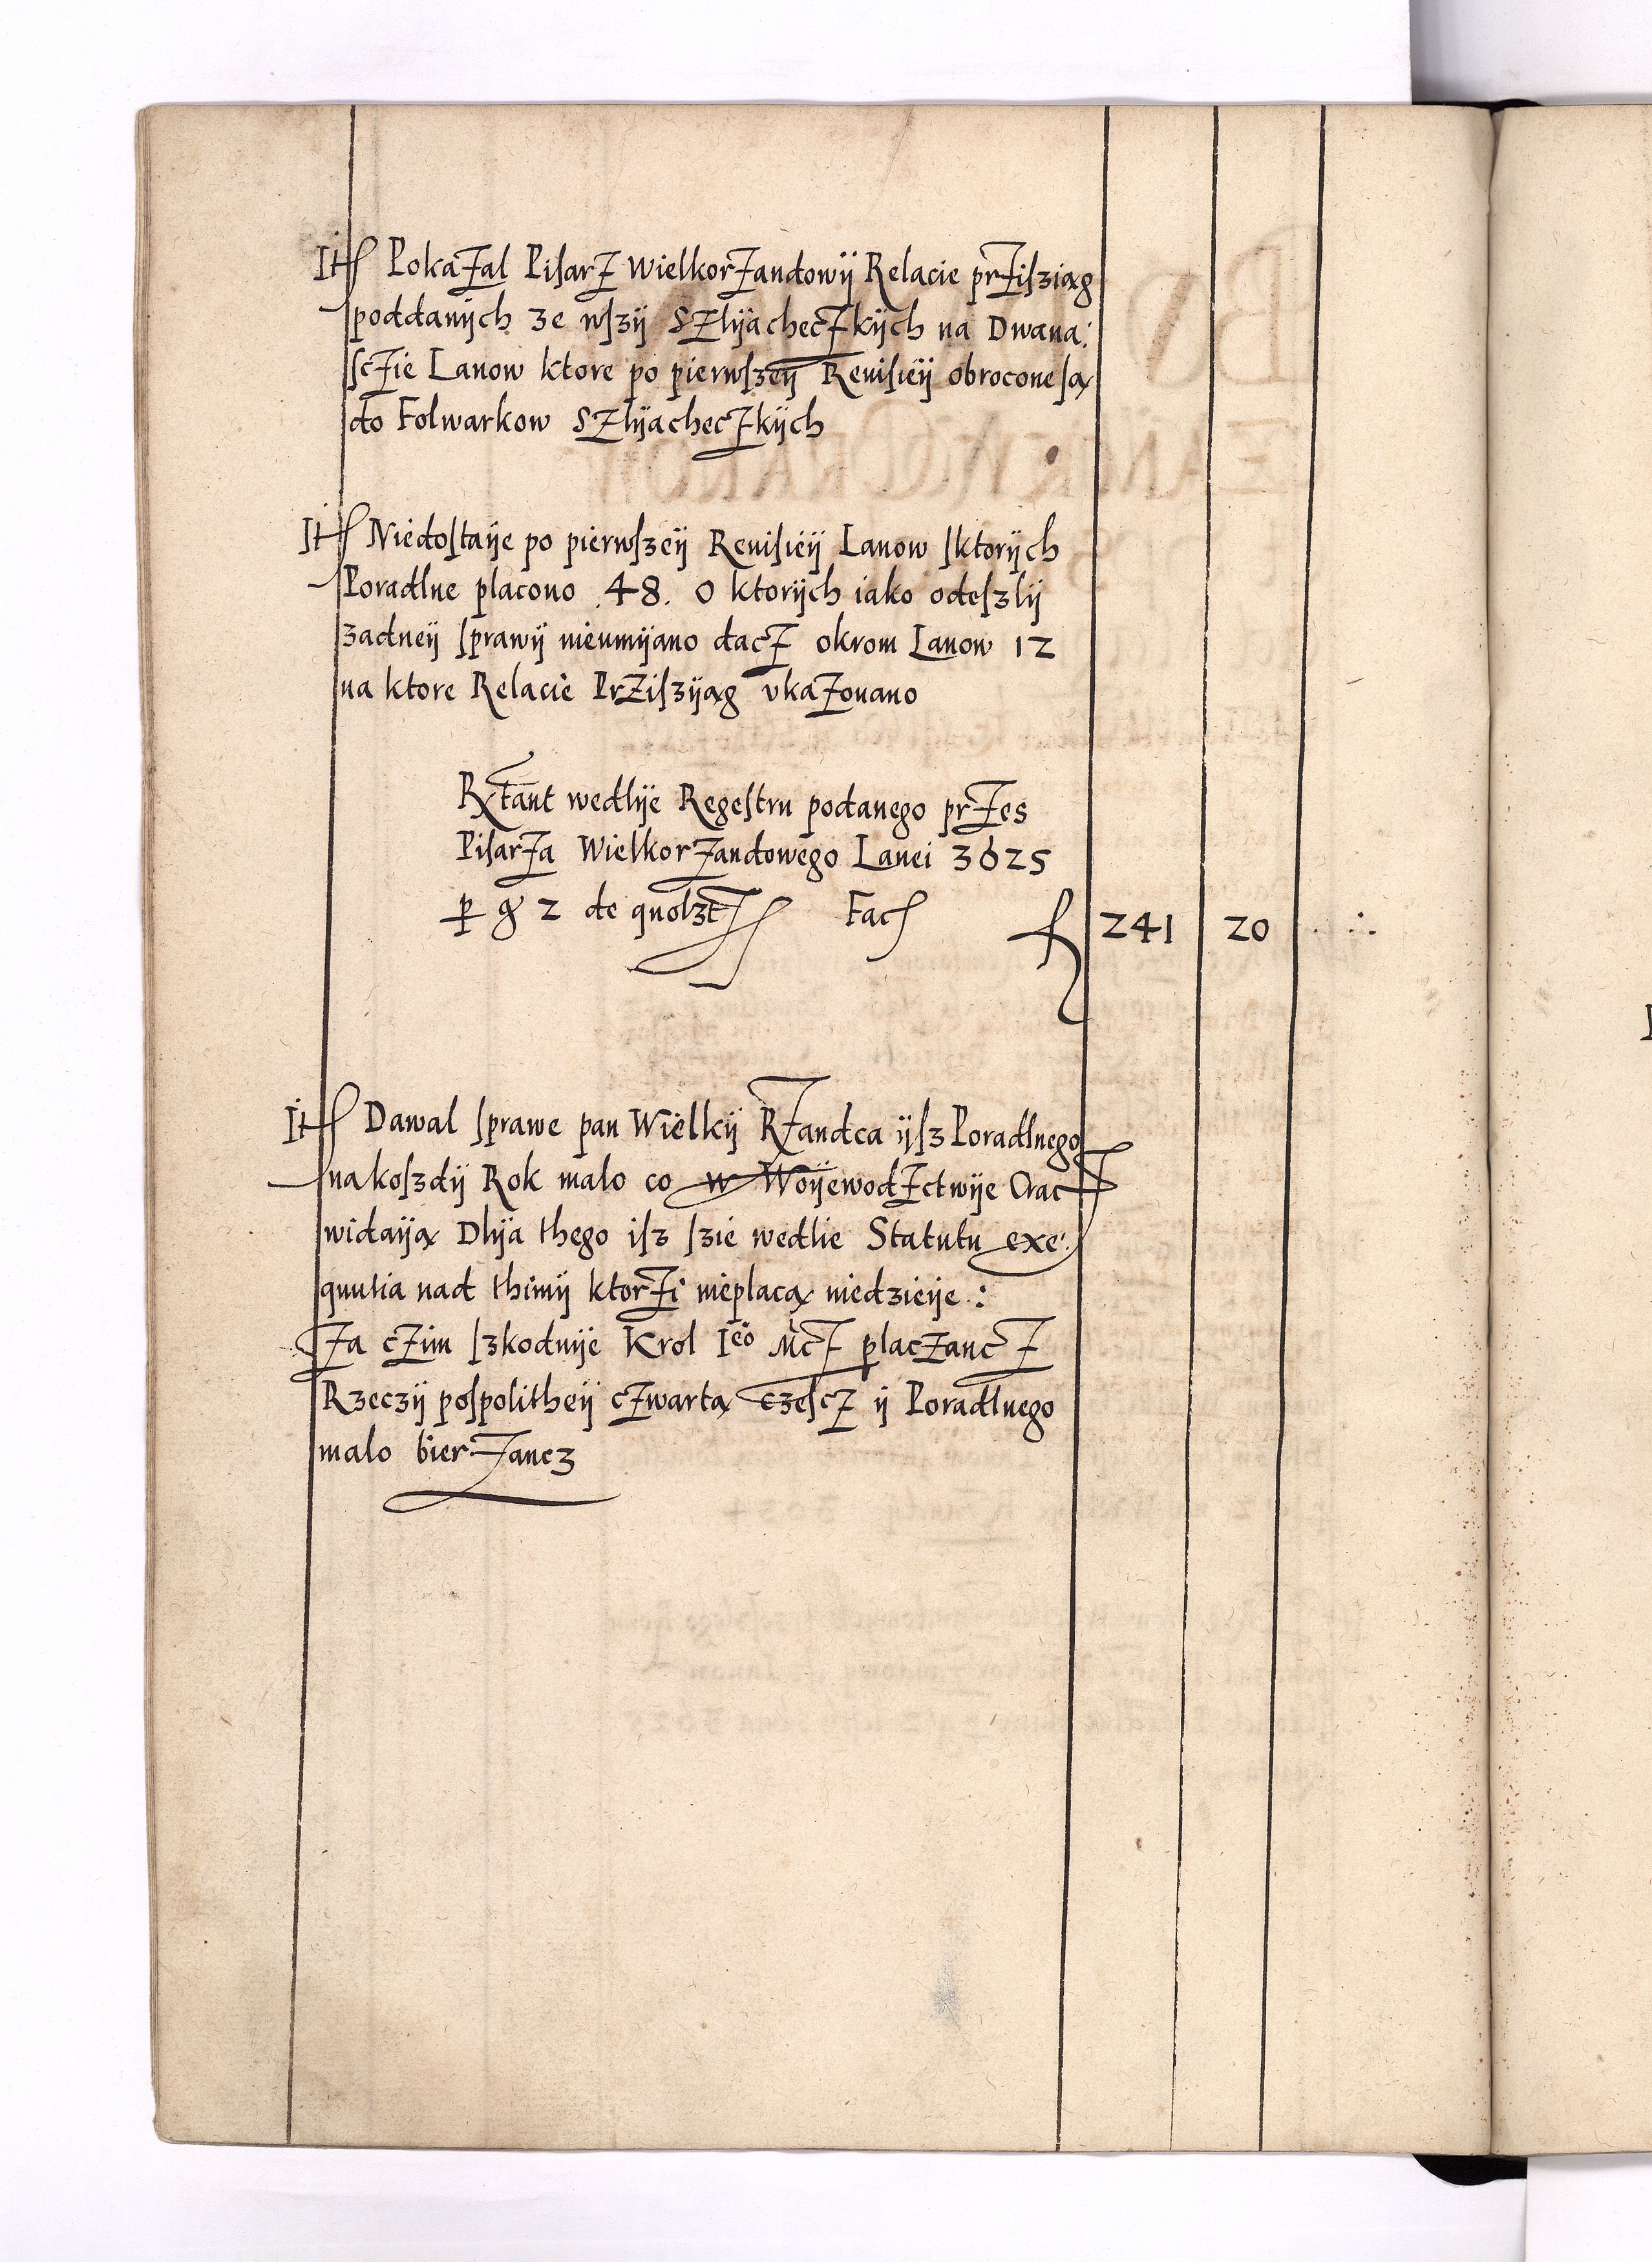 Itß Pokazal Pisarz Wielkorzandowÿ Relacie przisziąg
poddanÿch ze wszÿ Szlÿacheczkÿch na Dwana:
sczie Lanow ktore po pierwszeÿ Reuisieÿ obrocone są
do Folwarkow Szlÿacheczkÿch
Itß Niedostaÿe po pierwszeÿ Reuisieÿ Lanow sktorÿch
Poradlne placono .48. O ktorÿch iako odeszlÿ
zadneÿ sprawÿ nieumÿano dacz okrom Lanow 12
na ktore Relacie Prziszÿąg vkazouano
Rxtant wedlÿe Regestru podanego przes
Pisarza Wielkorzandowego Lanei 3625
p gr 2 de quolzt Fac fl 241 20
Itß Dawal sprawe pan Wielkÿ Rzandca ÿsz Poradlnego
na koszdÿ Rok malo co w Woÿewodzctwÿe Crac
widaÿą Dlÿa thego isz szie wedlie Statutu exe:
quutia nad thimÿ ktorzi nieplacą niedzieÿe :
Za czim szkodnÿe Krol Ieo Mcz placzancz
Rzeczÿ pospolitheÿ czwartą czescz ÿ Poradlnego
malo bierzancz